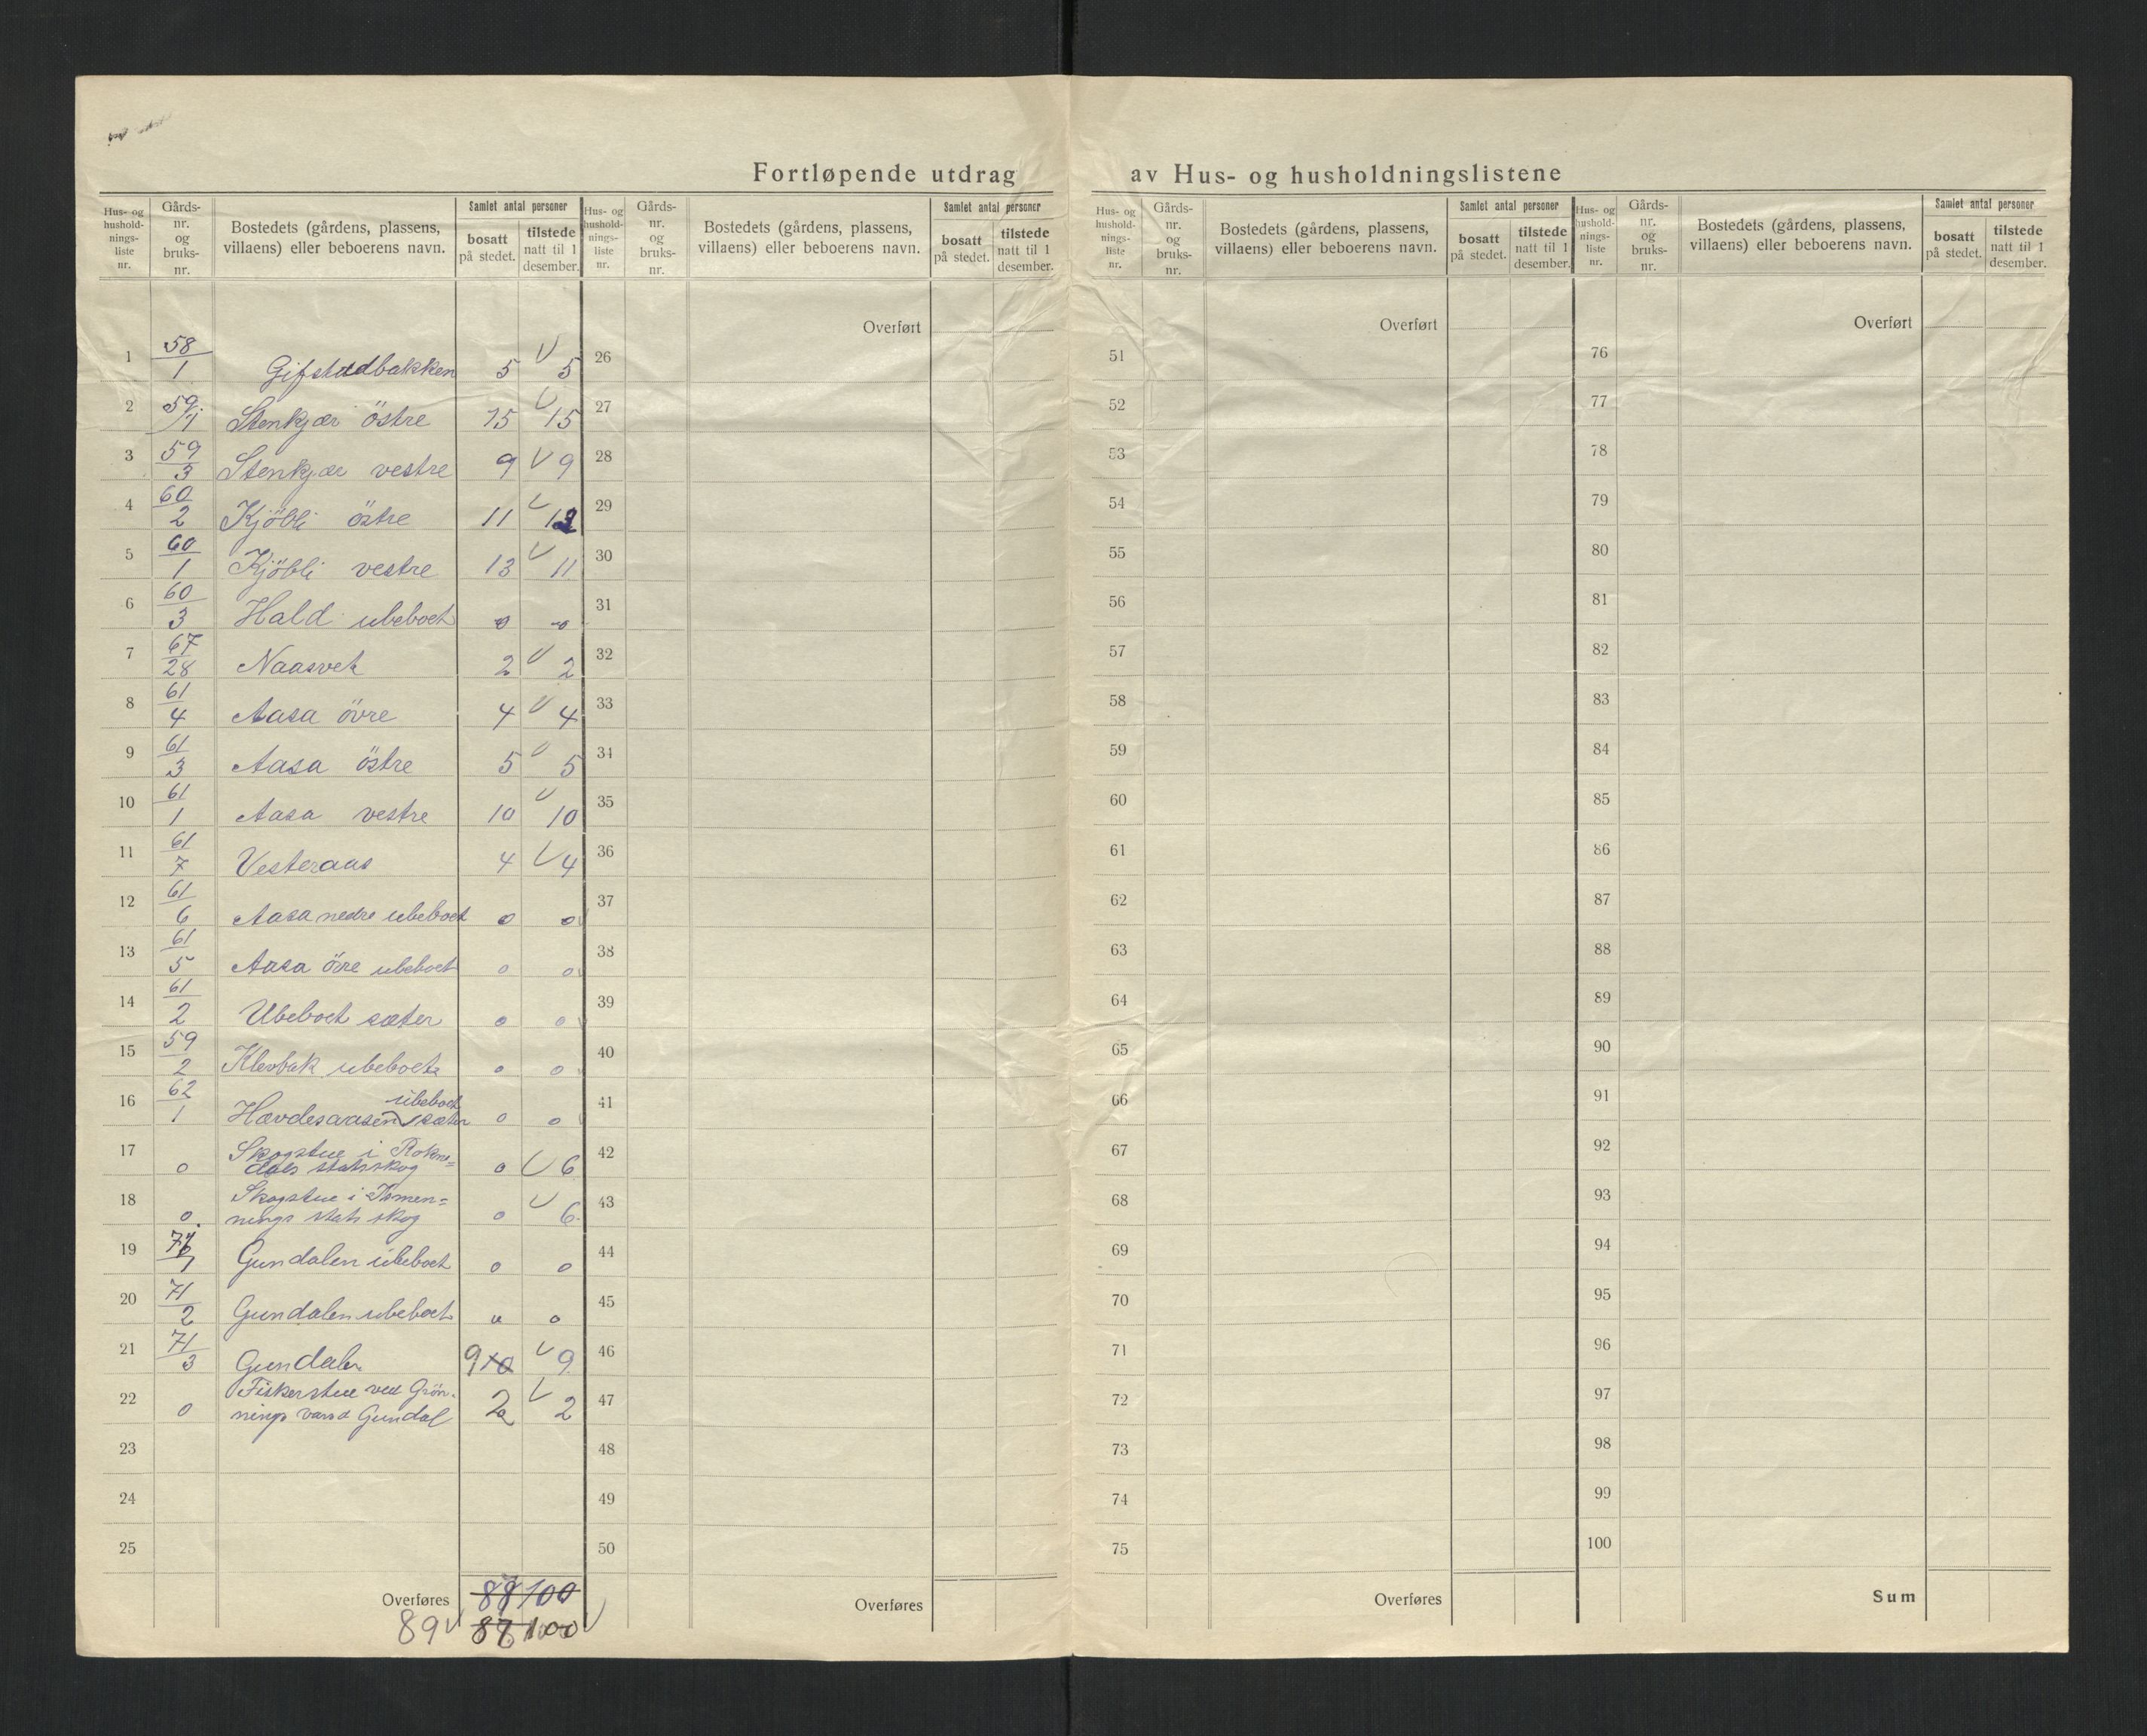 Fortløpende utdrag av Hus- og husholdningslistene
Hus- og hushold- nings- liste nr. | Gårds- nr. og bruks- nr. | Bostedets (gårdens, plassens, villaens) eller beboerens navn. | Samlet antal personer | bosatt på stedet. | tilstede natt til 1 desember.
1 58/1 Gifstadbakken 5 V 5
2 59/1 Stenkjær östre 15 V 15
3 59/3 Stenkjær vestre 9 V 9
4 60/2 Kjöbli östre 11 V 12
5 60/1 Kjöbli vestre 13 V 11
6 60/3 Hald ubeboet 0 0
7 67/28 Naasvet 2 V 2
8 61/4 Aasa övre 4 V 4
9 61/3 Aasa östre 5 V 5
10 61/1 Aasa vestre 10 V 10
11 61/7 Vesteraas 4 V 4
12 61/6 Aasa nedre ubeboet 0 0
13 61/5 Aasa övre ubeboet 0 0
14 61/2 Ubeboet sæter 0 0
15 59/2 Klevbak ubeboet 0 0
16 62/1 Hævdesaasen ubeboet sæter 0 0
17 0 Skogstue i
dals statsskog 0 V 6
18 0 Skogstue i
nings stats skog 0 V 6
19 71/1 Gundalen ubeboet 0 0
20 71/2 Gundalen ubeboet 0 0
21 71/3 Gundalen 9 10 V 9
22 0 Fiskerstue ved Grön-
nings vand Gundal 2 V 2
23
24
25
Overføres 88 100
89 V 87 100 V
Hus- og hushold- nings- liste nr. | Gårds- nr. og bruks- nr. | Bostedets (gårdens, plassens, villaens) eller beboerens navn. | Samlet antal personer | bosatt på stedet. | tilstede natt til 1 desember.
Overført
26
27
28
29
30
31
32
33
34
35
36
37
38
39
40
41
42
43
44
45
46
47
48
49
50
Overføres
Hus- og hushold- nings- liste nr. | Gårds- nr. og bruks- nr. | Bostedets (gårdens, plassens, villaens) eller beboerens navn. | Samlet antal personer | bosatt på stedet. | tilstede natt til 1 desember.
Overført
51
52
53
54
55
56
57
58
59
60
61
62
63
64
65
66
67
68
69
70
71
72
73
74
75
Overføres
Hus- og hushold- nings- liste nr. | Gårds- nr. og bruks- nr. | Bostedets (gårdens, plassens, villaens) eller beboerens navn. | Samlet antal personer | bosatt på stedet. | tilstede natt til 1 desember.
Overført
76
77
78
79
80
81
82
83
84
85
86
87
88
89
90
91
92
93
94
95
96
97
98
99
100
Sum